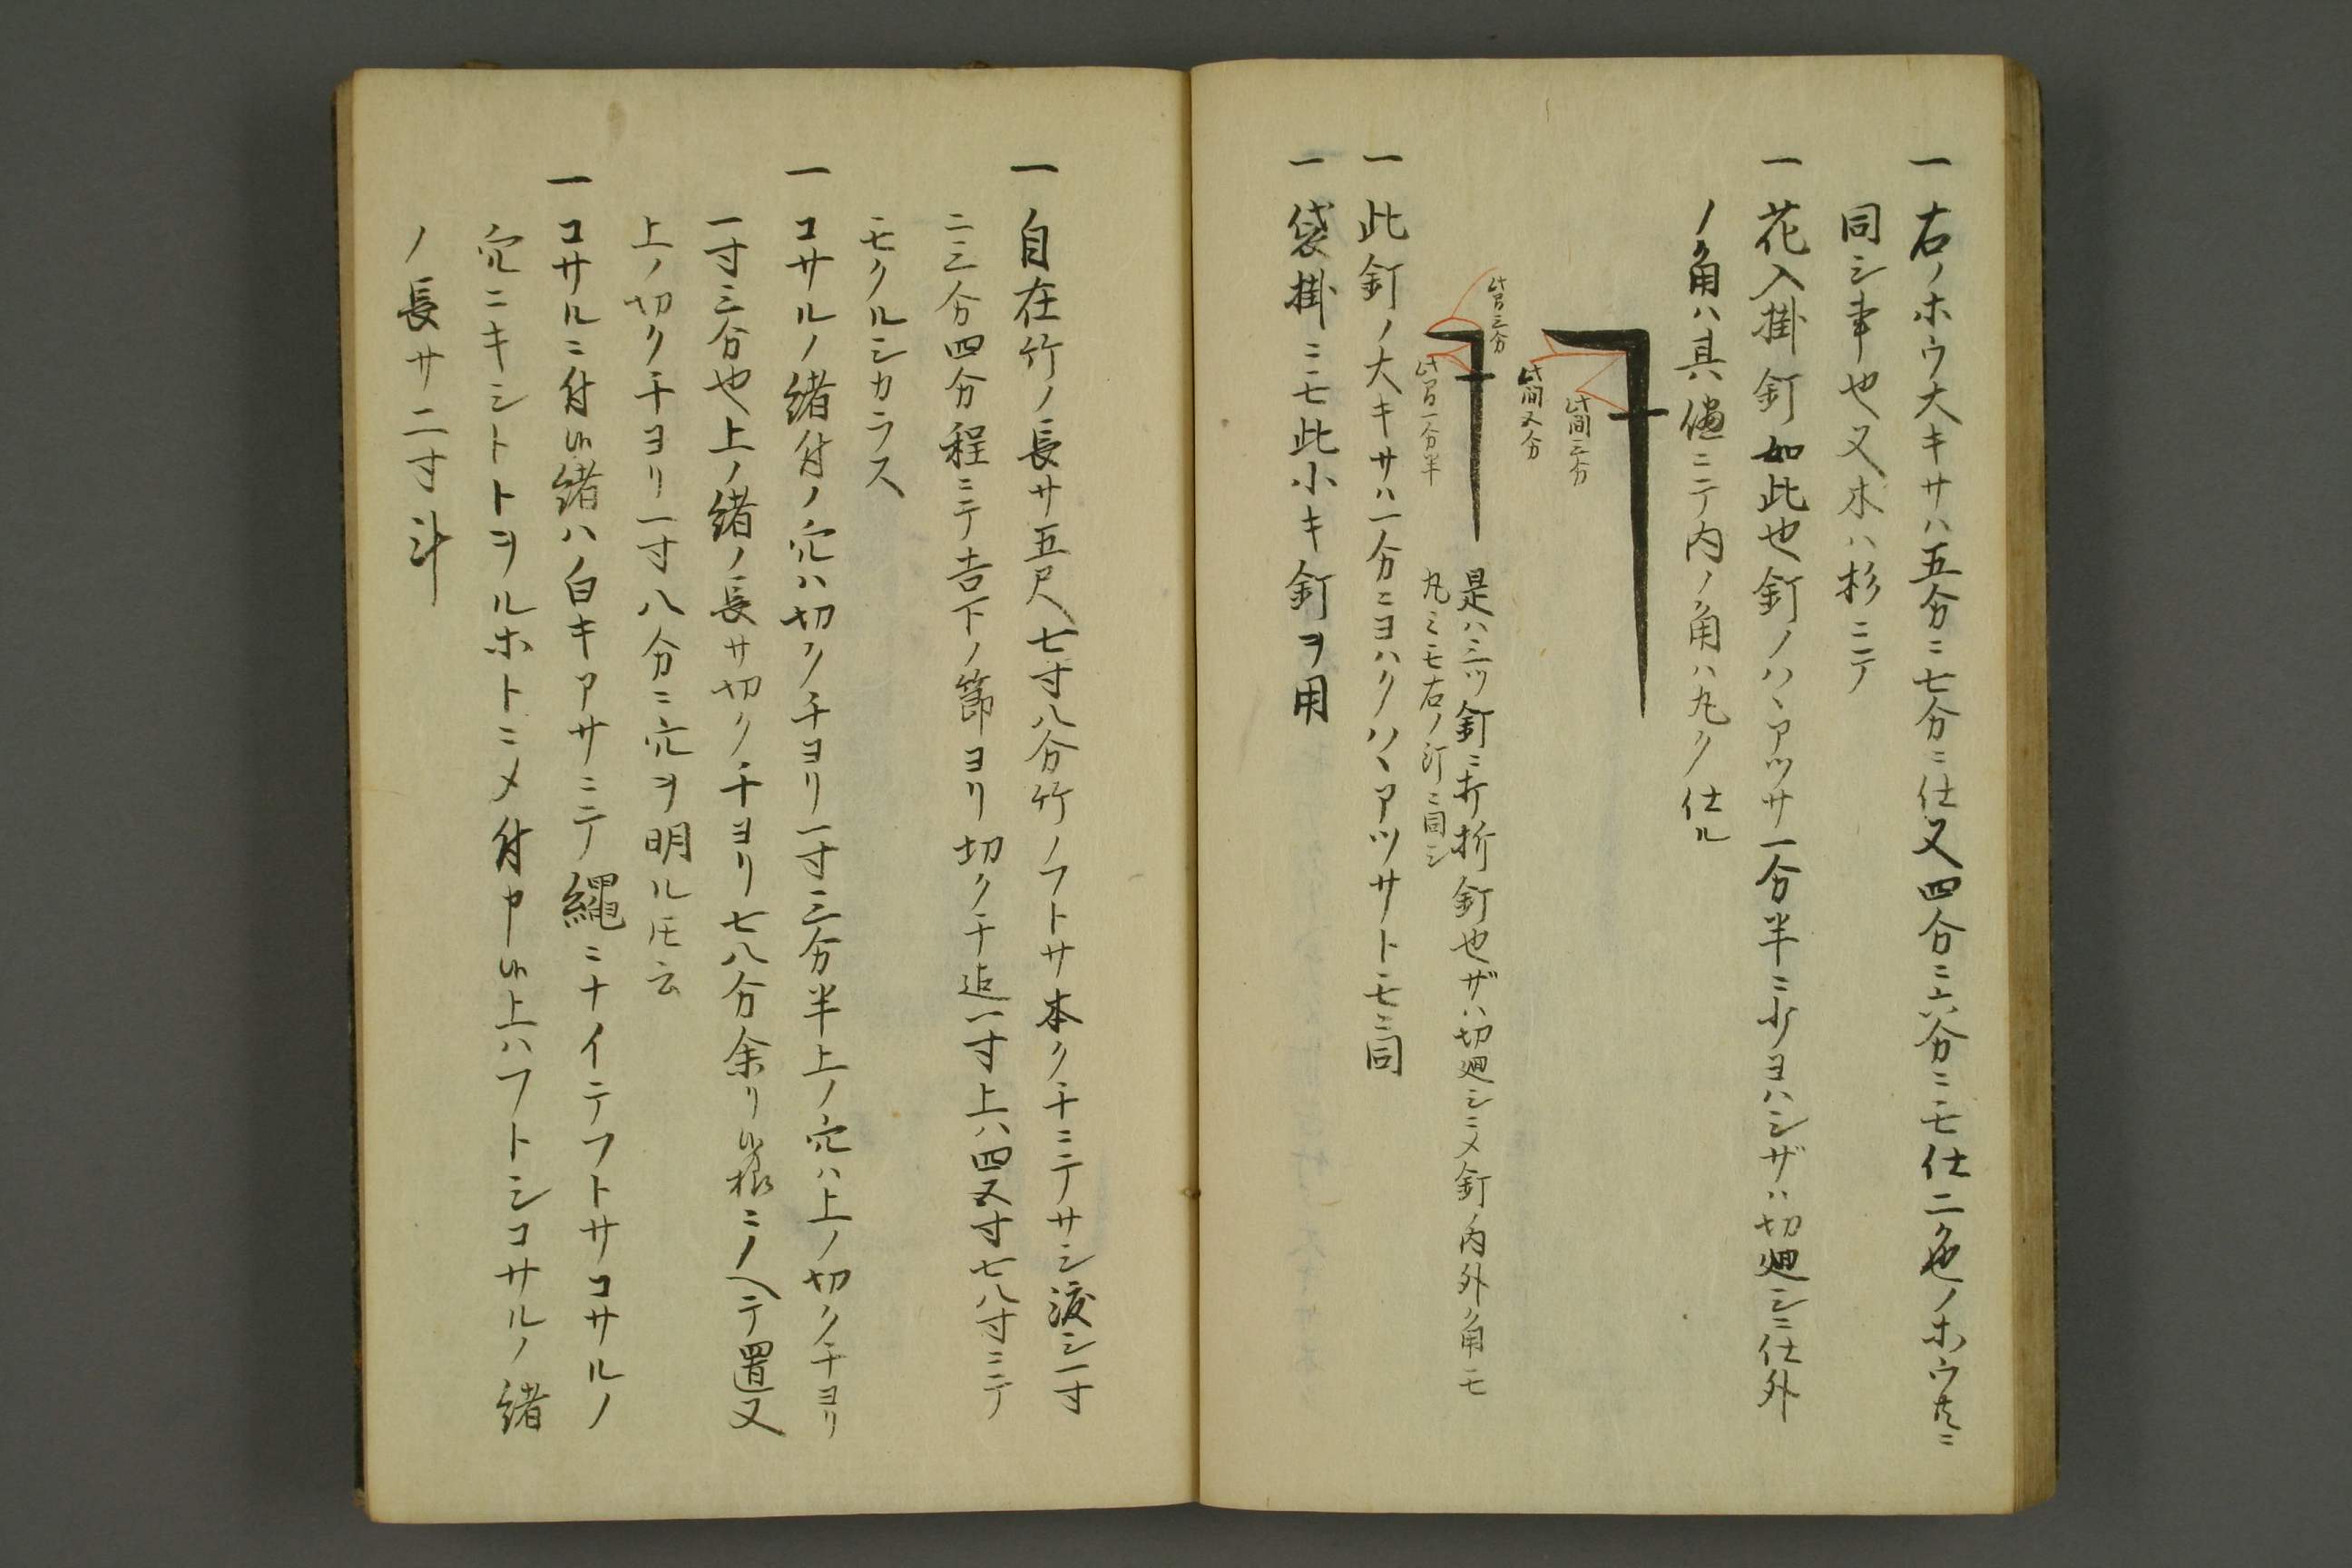 一右ノホウ大キサハ五分ニ七分ニ仕又四分ニ六分ニモ仕二色ノホウ共ニ
同シ事也又木ハ杉ニテ
一花入掛釘如此也釘ノハヽアツサ一分半ニ少ヨハシザハ切廻シニ仕外
ノ角ハ其儘ニテ内ノ角ハ丸ク仕ル
此間三分
此間五分
此間三分
此間一分半
是ハ三ツ釘ニ打折釘也ザハ切廻シニメ釘ノ内外ノ角モ
丸ミモ右ノ釘ニ同シ
一此釘ノ大キサハ一分ニヨハクハヽアツサトモニ同
一袋掛ニモ此小キ釘ヲ用
一自在竹ノ長サ五尺七寸八分竹ノフトサ本クチニテサシ渡シ一寸
二三分四分程ニテ吉下ノ節ヨリ切クチ迄一寸上ハ四五寸七八寸ニテ
モクルシカラス
一コサルノ緒付ノ穴ハ切クチヨリ一寸三分半上ノ穴ハ上ノ切クチヨリ
一寸三分也上ノ緒ノ長サ切クチヨリ七八分余リ候様ニノヘテ置又
上ノ切クチヨリ一寸八分ニ穴ヲ明ル𪜈云
一コサルニ付候緒ハ白キアサニテ繩ニナイテフトサコサルノ
穴ニキシトトヲルホトニメ付申候上ハフトシコサルノ緒
ノ長サ二寸斗